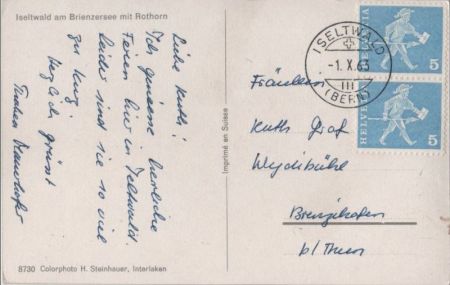 Iseltwald am Brienzersee mit Rothorn
Liebe Ruth!
Ich geniesse herrliche
Ferien hier in Iseltwald.
Leider sind sie so viel
zu kurz.
Herzlich grüsst
Imprimé en Suisse
8730 Colorphoto H. Steinhauer, Interlaken
ISELTWALD
-1.X.63
III
(BERN)
HELVETIA
5
HELVETIA
5
Fräulein
Ruth Graf
Wydibühl
Brenzikofen
b/Thun